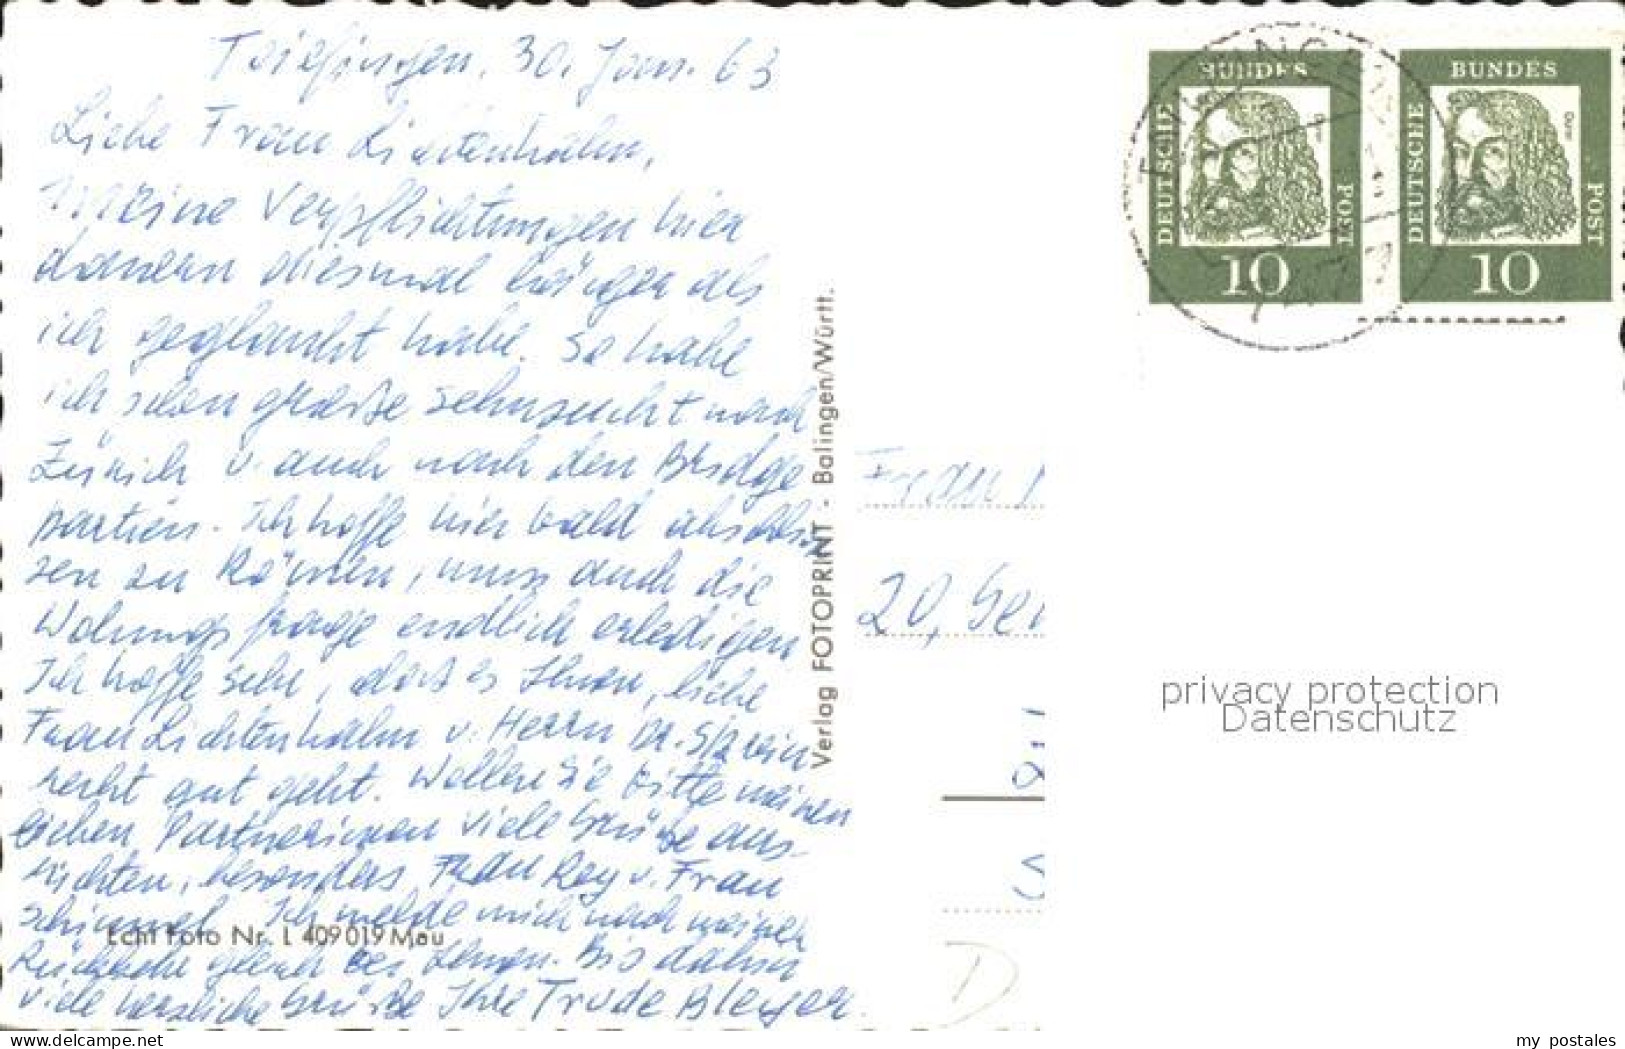 Tailfingen, 30. Jan. 63
Liebe Frau Lichtenhahn,
Meine Verpflichtungen hier
dauern diesmal länger als
ich geglaubt habe. So habe
ich schon große Sehnsucht nach
Zürich u. auch nach den Bridge
partien. Ich hoffe hier bald abschlies
sen zu können, muss auch die
Wohnungsfrage endlich erledigen
Ich hoffe sehr, dass es Ihnen, liebe
Frau Lichtenhahn u. Herrn Dr.
recht gut geht. Wollen Sie bitte meinen
lieben Partnerinnen viele Grüße aus-
richten, besonders Frau Rey u. Frau
Schimmel. Ich melde mich nach meiner
Rückkehr gleich bei Ihnen. Bis dahin
viele herzliche Grüße Ihre Trude Bleyer.
Echt Foto Nr. L 409019 Mau
Verlag FOTOPRINT - Balingen/Württ.
DEUTSCHE BUNDES POST
10
DEUTSCHE BUNDES POST
Dürer
10
Frau
20,
D
privacy protection
Datenschutz
delcampe.net
my postales